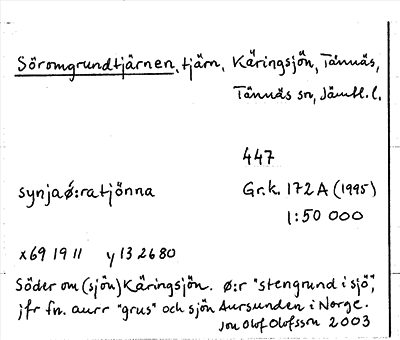 Söromgrundtjärnen, tjärn, Käringsjön, Tännäs,
Tännäs sn, Jämtl. l.
447
synjaǿ:ratjönna Gr.k. 172 A (1995)
1:50 000
x 69 19 11 y 13 26 80
Söder om (sjön) Käringsjön. ø:r "stengrund i sjö",
jfr fn. aurr "grus" och sjön Aursunden i Norge.
Jon Olof Olofsson 2003